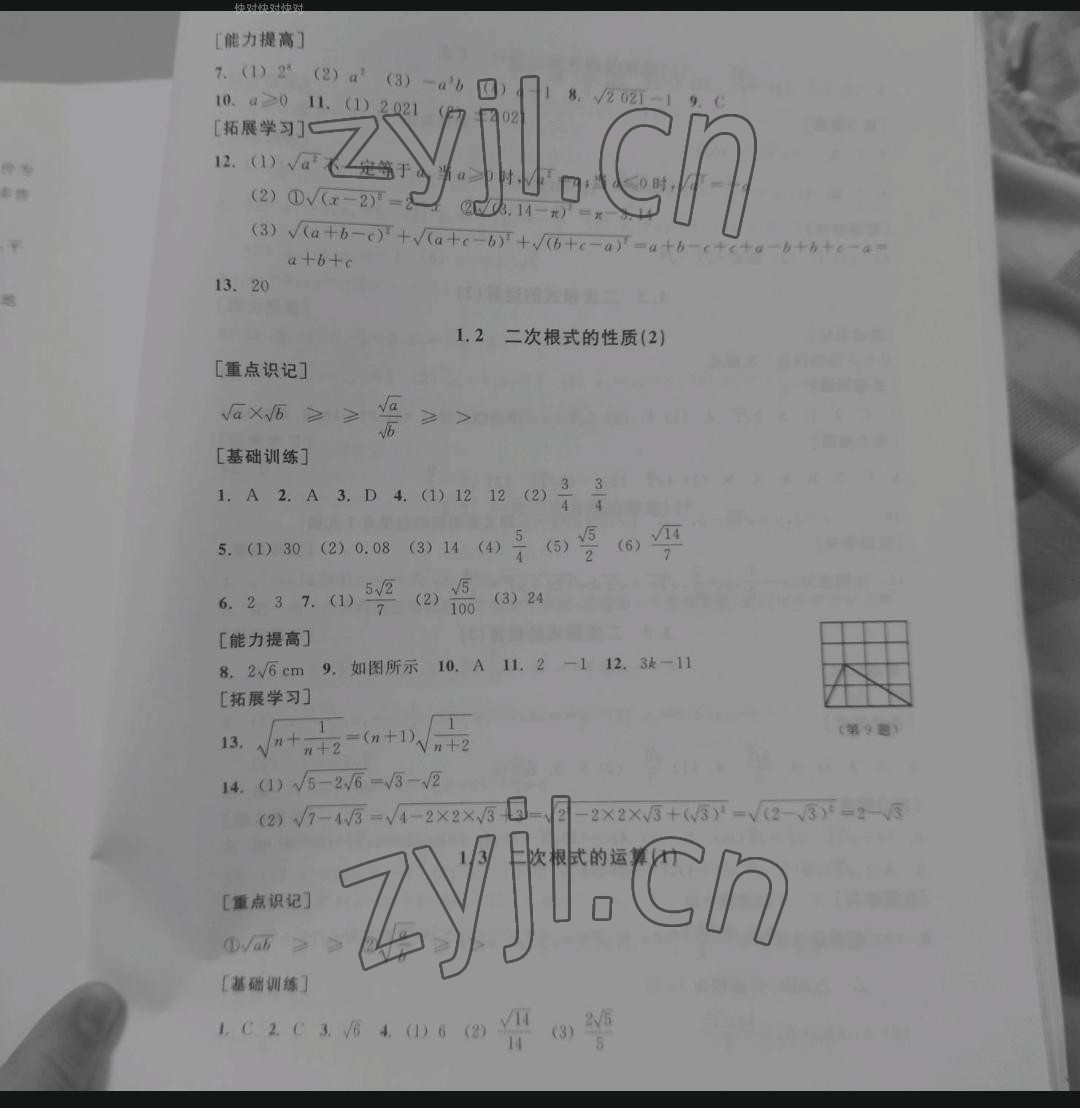 快对快对快对
[能力提高]
7. (1) 2⁸ (2) a² (3) −a³b (4) a−1 8. √(2 021)−1 9. C
10. a≥0 11. (1) 2 021 (2) ±2 021
[拓展学习]
12. (1) √(a²)不一定等于a,当a≥0时,√(a²)=a;当a≤0时,√(a²)=−a
(2) ①√((x−2)²)=2−x ②√((3.14−π)²)=π−3.14
(3) √((a+b−c)²)+√((a+c−b)²)+√((b+c−a)²)=a+b−c+c+a−b+b+c−a=
a+b+c
13. 20
1.2 二次根式的性质(2)
[重点识记]
√a×√b ≥ ≥ √a/√b ≥ >
[基础训练]
1. A 2. A 3. D 4. (1) 12 12 (2) 3/4 3/4
5. (1) 30 (2) 0.08 (3) 14 (4) 5/4 (5) √5/2 (6) √14/7
6. 2 3 7. (1) 5√2/7 (2) √5/100 (3) 24
[能力提高]
8. 2√6 cm 9. 如图所示 10. A 11. 2 −1 12. 3k−11
[拓展学习]
(第9题)
13. √(n+1/(n+2))=(n+1)√(1/(n+2))
14. (1) √(5−2√6)=√3−√2
(2) √(7−4√3)=√(4−2×2×√3+3)=√(2²−2×2×√3+(√3)²)=√((2−√3)²)=2−√3
1.3 二次根式的运算(1)
[重点识记]
①√(ab) ≥ ≥ ②√(a/b) ≥ >
[基础训练]
1. C 2. C 3. √6 4. (1) 6 (2) √14/14 (3) 2√5/5
zyjl.cn
zyjl.cn